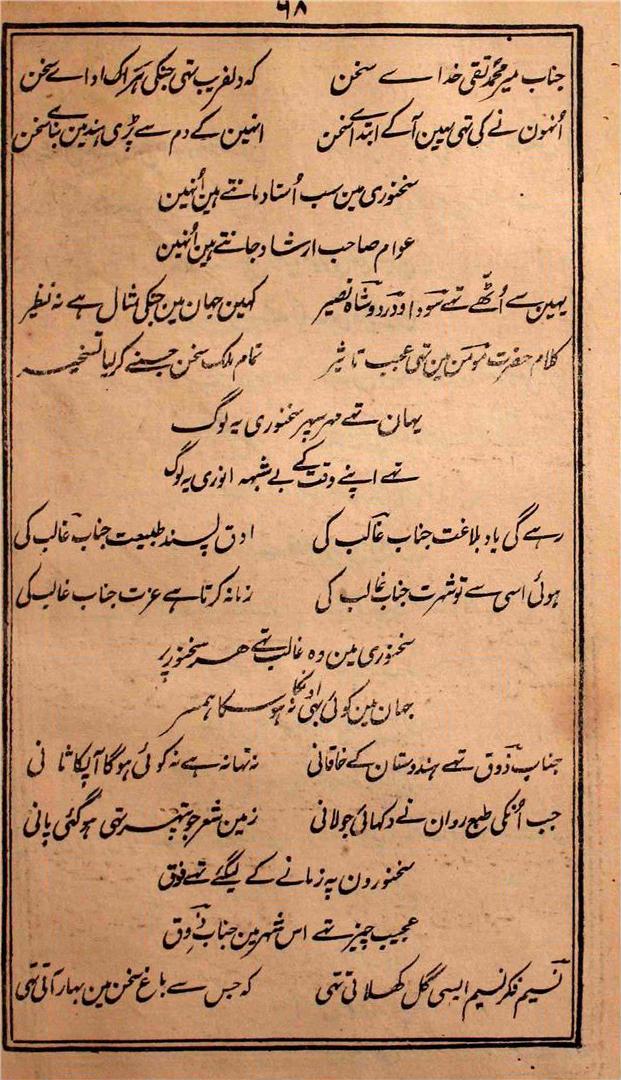 ۶۸
جناب میر محمد تقی خداے سخن کہ دلفریب تہی جنکی ہر اک اداے سخن
اُنہون نے کی تہی یہین آکے ابتداے سخن انہین کے دم سے پڑی ہند مین بناے سخن
سخنوری مین سب اُستاد مانتے ہین اُنہین
عوام صاحب ارشاد جانتے ہین اُنہین
یہین سے اُٹھّے تہے سودا و درد و شاہ نصیر کہین جہان مین جنکی مثال ہے نہ نظیر
کلام حضرت مومن مین تہی عجب تاثیر تمام ملک سخن جسنے کر لیا تسخیر
یہان تہے مہر سپہر سخنوری یہ لوگ
تہے اپنے وقت کے بے شبہہ انوری یہ لوگ
رہے گی یاد بلاغت جناب غالب کی ادق پسند طبیعت جناب غالب کی
ہوئی اسی سے تو شہرت جناب غالب کی زمانہ کرتا ہے عزت جناب غالب کی
سخنوری مین وہ غالب تہے ہر سخنور پر
جہان مین کوئی بہی اونکا نہ ہو سکا ہمسر
جناب ذوق تہے ہندوستان کے خاقانی نہ تہا نہ ہے نہ کوئی ہوگا آپکا ثانی
جب اُنکی طبع روان نے دکہائی جولانی زمین شعر جو پتہر تہی ہو گئی پانی
سخنورون پہ زمانے کے لیگئے تہے فوق
عجیب چیز تہے اس شہر مین جناب ذوق
نسیم فکر نسیم ایسی گل کھلاتی تہی کہ جس سے باغ سخن مین بہار آتی تہی